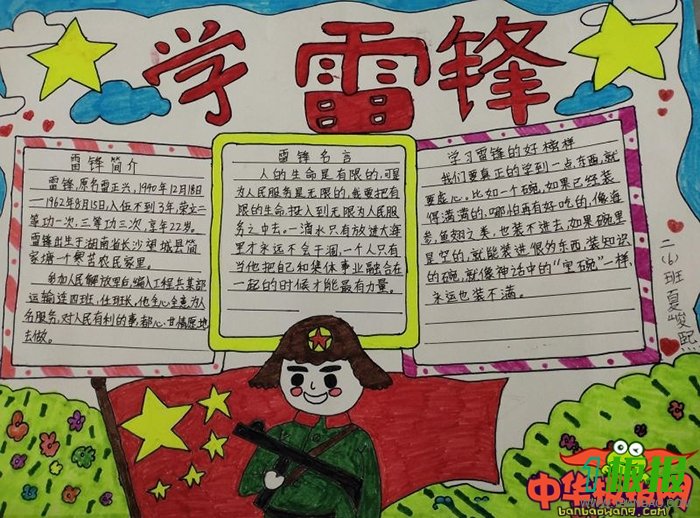 学雷锋
雷锋简介
雷锋,原名雷正兴,1940年12月18日
—1962年8月15日,人伍不到3年,荣立二
等功一次,三等功三次,享年22岁。
雷锋出生于湖南省长沙望城县简
家塘一个贫苦农民家里。
参加人民解放军后,编入工程兵某部
运输连四班,任班长,他全心全意为人
名服务,对人民有利的事,都心甘情愿地
去做。
雷锋名言
人的生命是有限的,可
为人民服务是无限的,我要把有
限的生命投入到无限为人民服
务之中去。一滴水只有放进大海
里才永远不会干涸,一个人只有
当他把自己和集体事业融合在
一起的时候才能最有力量。
学习雷锋的好榜样
我们要真正的学到一点东西,就
要虚心。比如一个碗,如果已经装
得满满的,哪怕再有好吃的,像海
参,鱼翅之类,也装不进去,如果碗里
是空的,就能装进很多东西,装知识
的碗,就像神话中的“宝碗”一样,
永远也装不满。
二(6)班夏峻熙
中华板报网
banbaowang.com